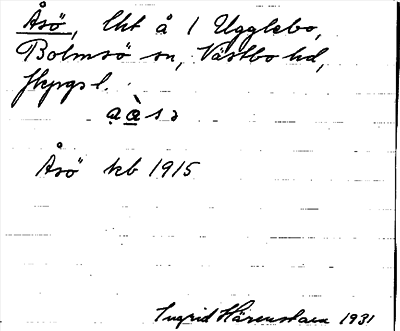 Åsö, lht å 1 Ugglebo,
Bolmsö sn, Västbo hd,
Jkpgs l.
Åsö kb 1915
Ingrid Härenstam 1931